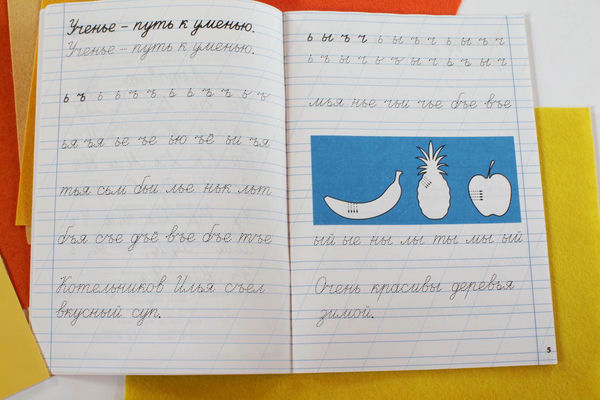 Ученье – путь к уменью.
Ученье – путь к уменью.
ь ъ ь ь ъ ъ ь ъ ъ ъ ь ъ
ья ъя ье ъе ью ъё ьи ъя
тья сьм бьи лье ньк льт
бъя съе дъё въе бъе тъе
Котельников Илья съел
вкусный суп.
ь ы ъ ч ь ы ъ ч ь ы ъ ч
мья нье чьи чье бъе въе
ый ые ны лы ты мы ый
Очень красивы деревья
зимой.
5